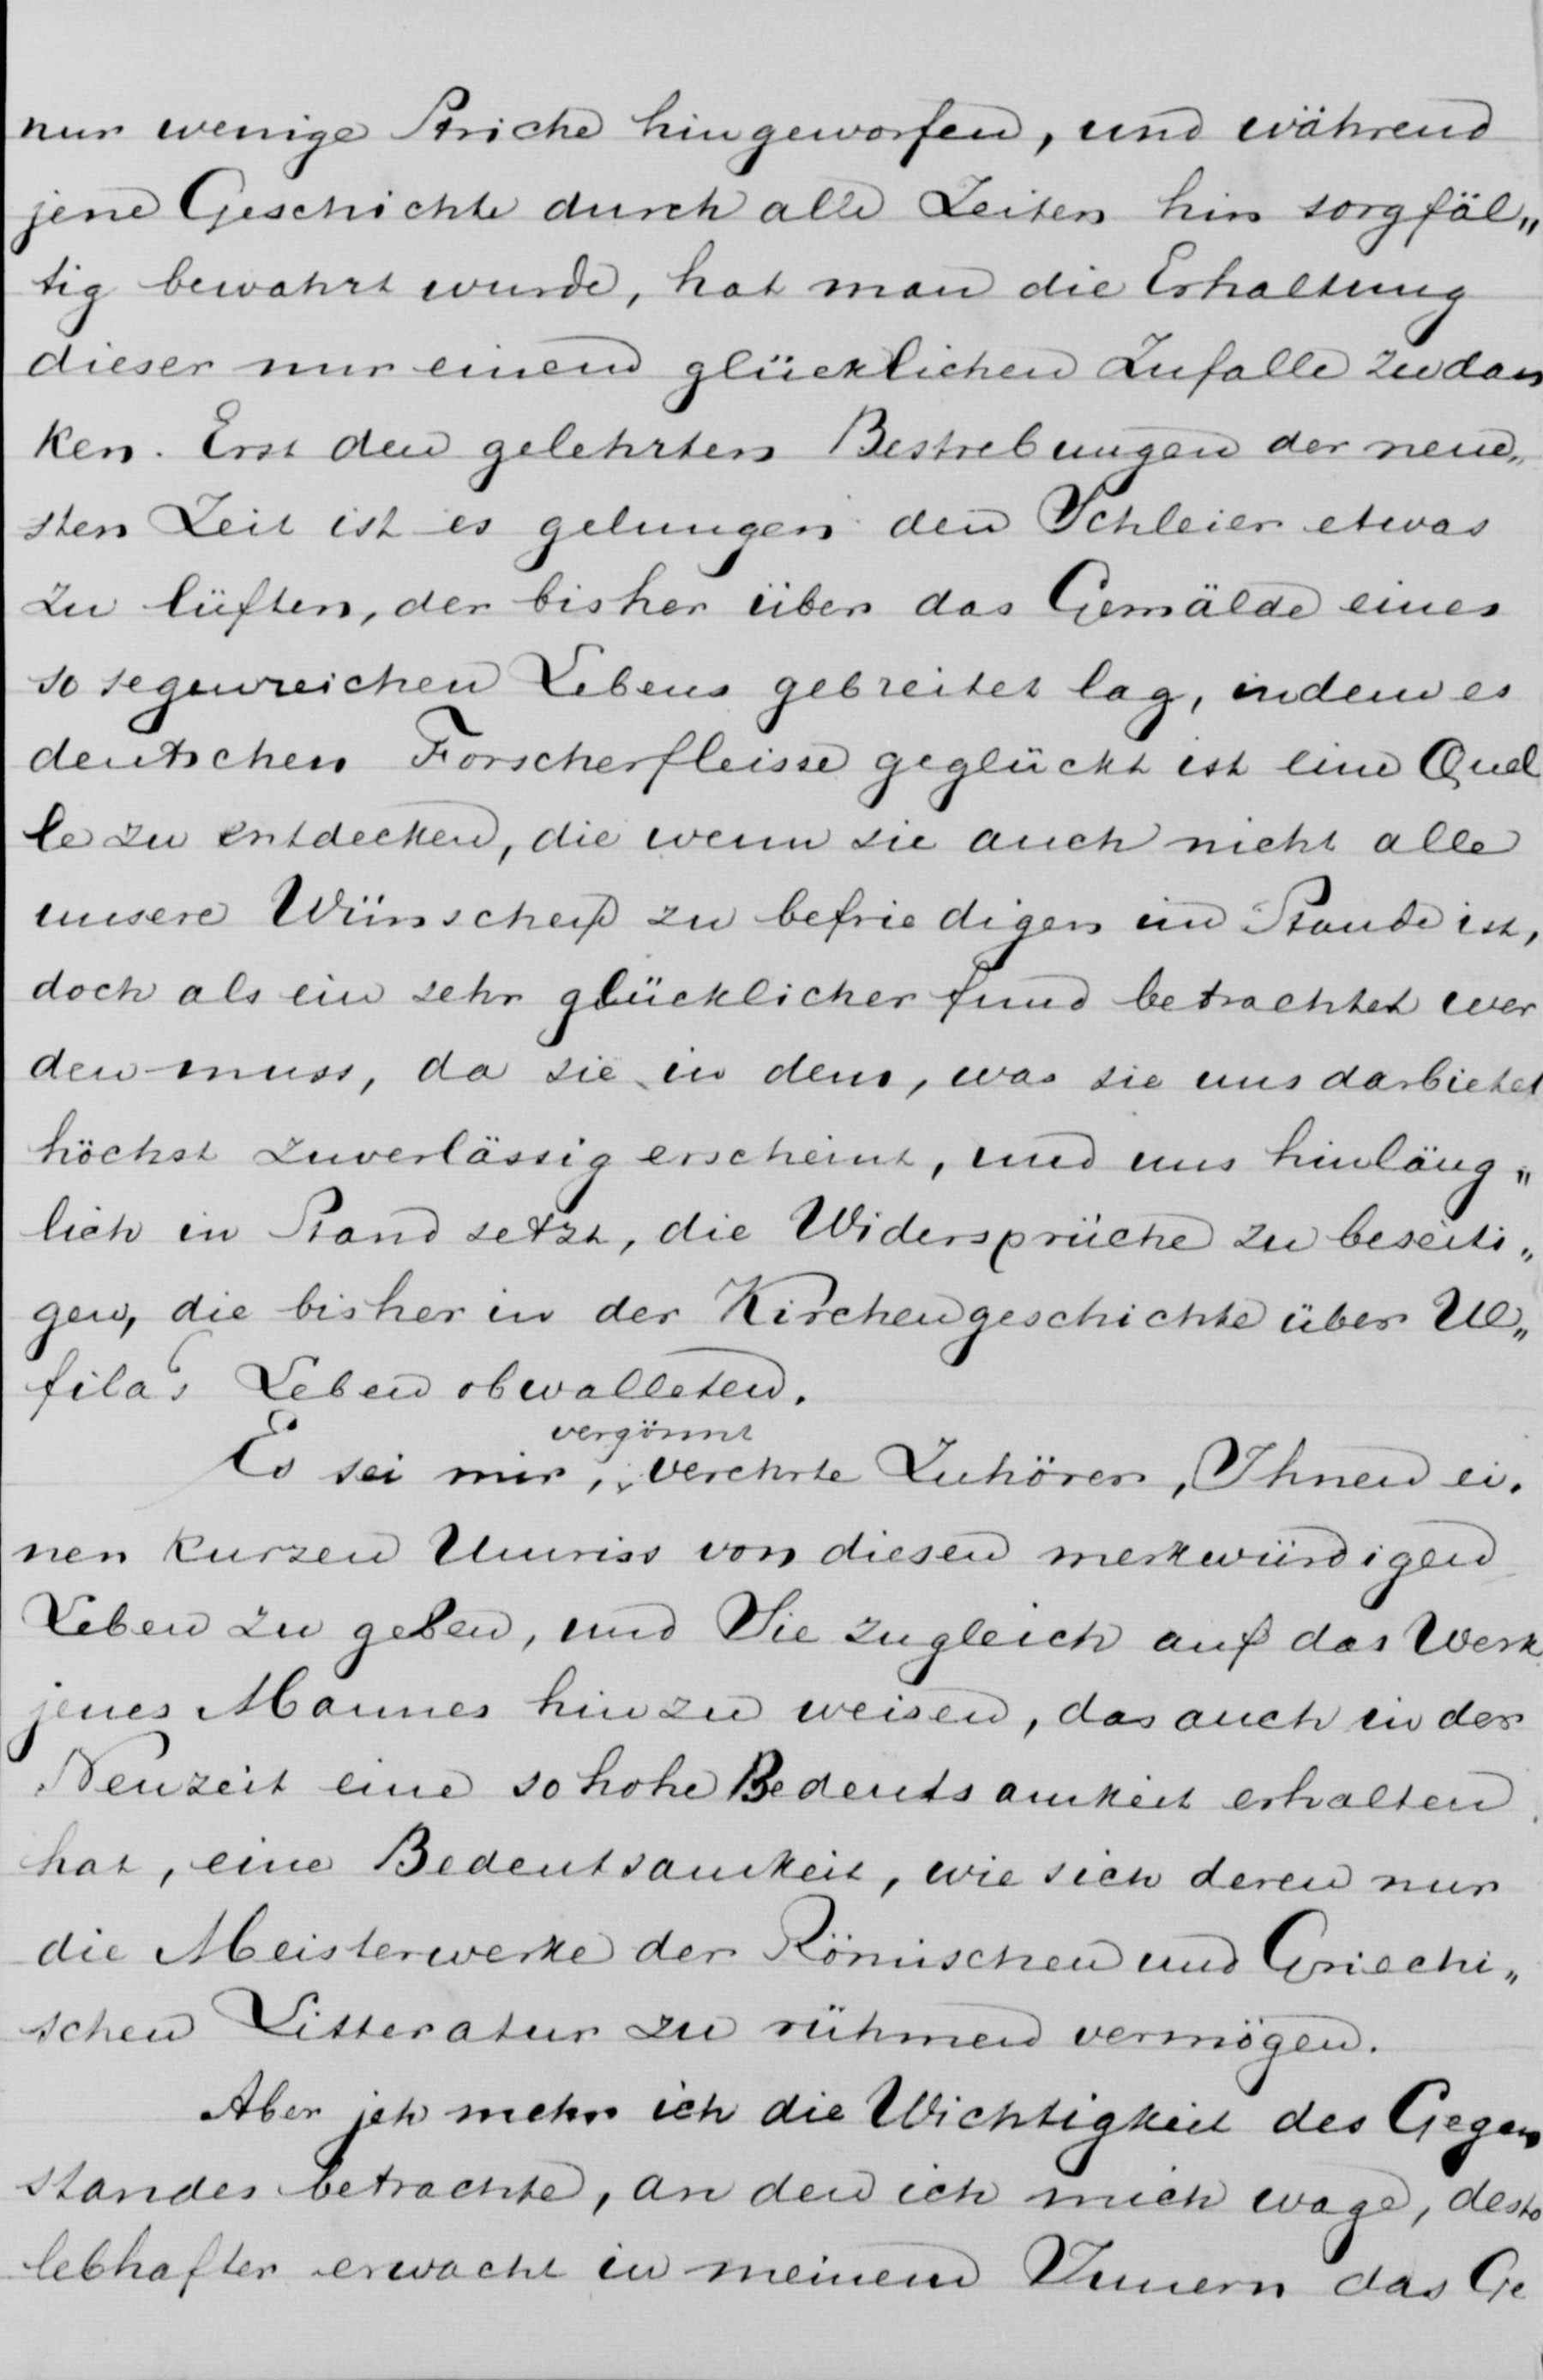 nur wenige Striche hingeworfen, und während
jene Geschichte durch alle Zeiten hin sorgfäl„
tig bewahrt wurde, hat man die Erhaltung
dieser nur einem glücklichen Zufalle zu dan
ken. Erst den gelehrten Bestrebungen der neue„
sten Zeit ist es gelungen den Schleier etwas
zu lüften, der bisher über das Gemälde eines
so segenreichen Lebens gebreitet lag, indem es
deutschen Forscherfleisse geglückt ist eine Quel
le zu entdecken, die wenn sie auch nicht alle
unsere Wünsche zu befriedigen im Stande ist,
doch als ein sehr glücklicher fund betrachtet wer
den muss, da sie in dem, was sie uns darbietet
höchst zuverlässig erscheint, und uns hinläng„
lich in Stand setzt, die Widersprüche zu beseiti„
gen, die bisher in der Kirchengeschichte über Ul„
fila's Leben obwalleten.
vergönnt
Es sei mir, verehrte Zuhörer, Ihnen ei.
nen kurzen Umriss von diesen merkwürdigen
Leben zu geben, und Sie zugleich auf das Werk
jenes Mannes hinzu weisen, das auch in der
Neuzeit eine so hohe Bedeutsamkeit erhalten
hat, eine Bedeutsamkeit, wie sich deren nur
die Meisterwerke der Römischen und Griechi„
schen Litteratur zu rühmen vermögen.
Aber jeh mehr ich die Wichtigkeit des Gegen
standes betrachte, an den ich mich wage, desto
lebhafter erwacht in meinem Innern das Ge